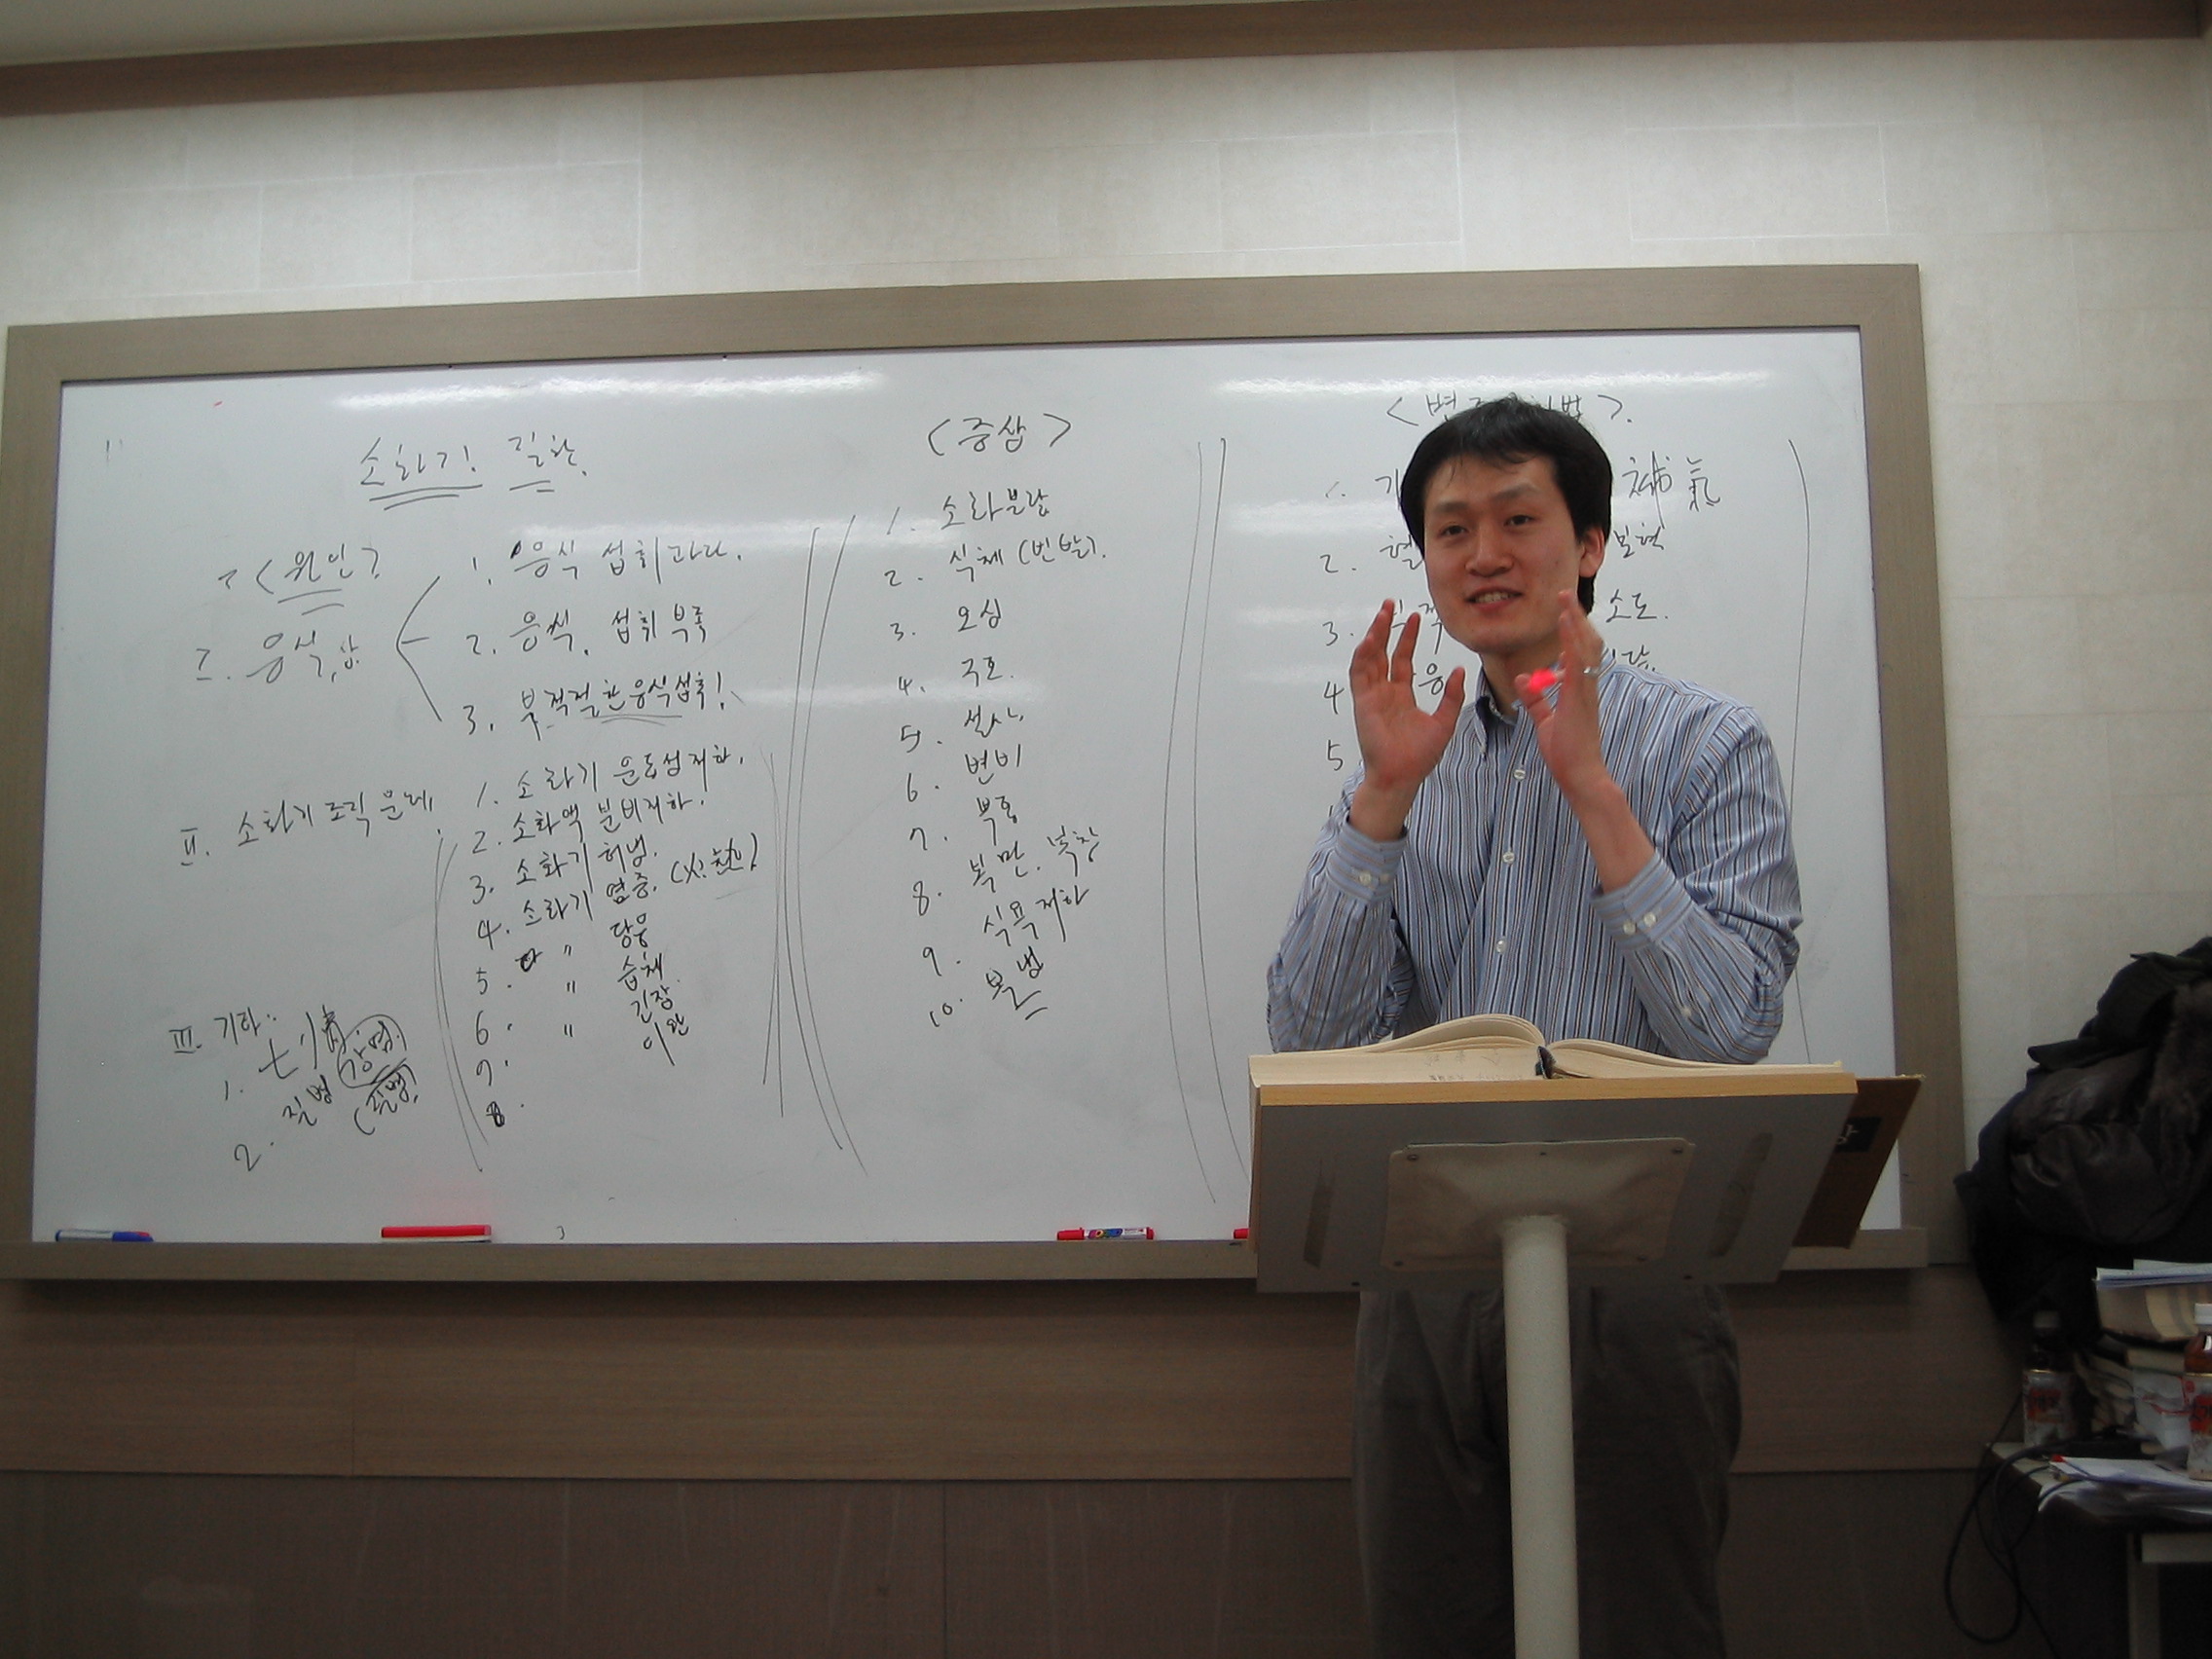 소화기 질환.
<원인>
I. 음식,
1. 음식 섭취과다.
2. 음식. 섭취 부족
3. 부적절한 음식섭취!
II. 소화기 조직 문제
1. 소화기 운동성 저하.
2. 소화액 분비저하.
3. 소화기 허냉.
4. 소화기 염증. (火. 熱)
5. " 담음
6. " 습체.
7. " 긴장
8. 이완
III 기타:
1. 七情
2. 질병
<증상>
1. 소화불량
2. 식체 (빈발).
3. 오심
4. 구토.
5. 설사.
6. 변비
7. 복통
8. 복만. 복창
9. 식욕저하
10. 복냉
1. 기 補氣
2. 혈 보혈
3. 소도.
4.
5